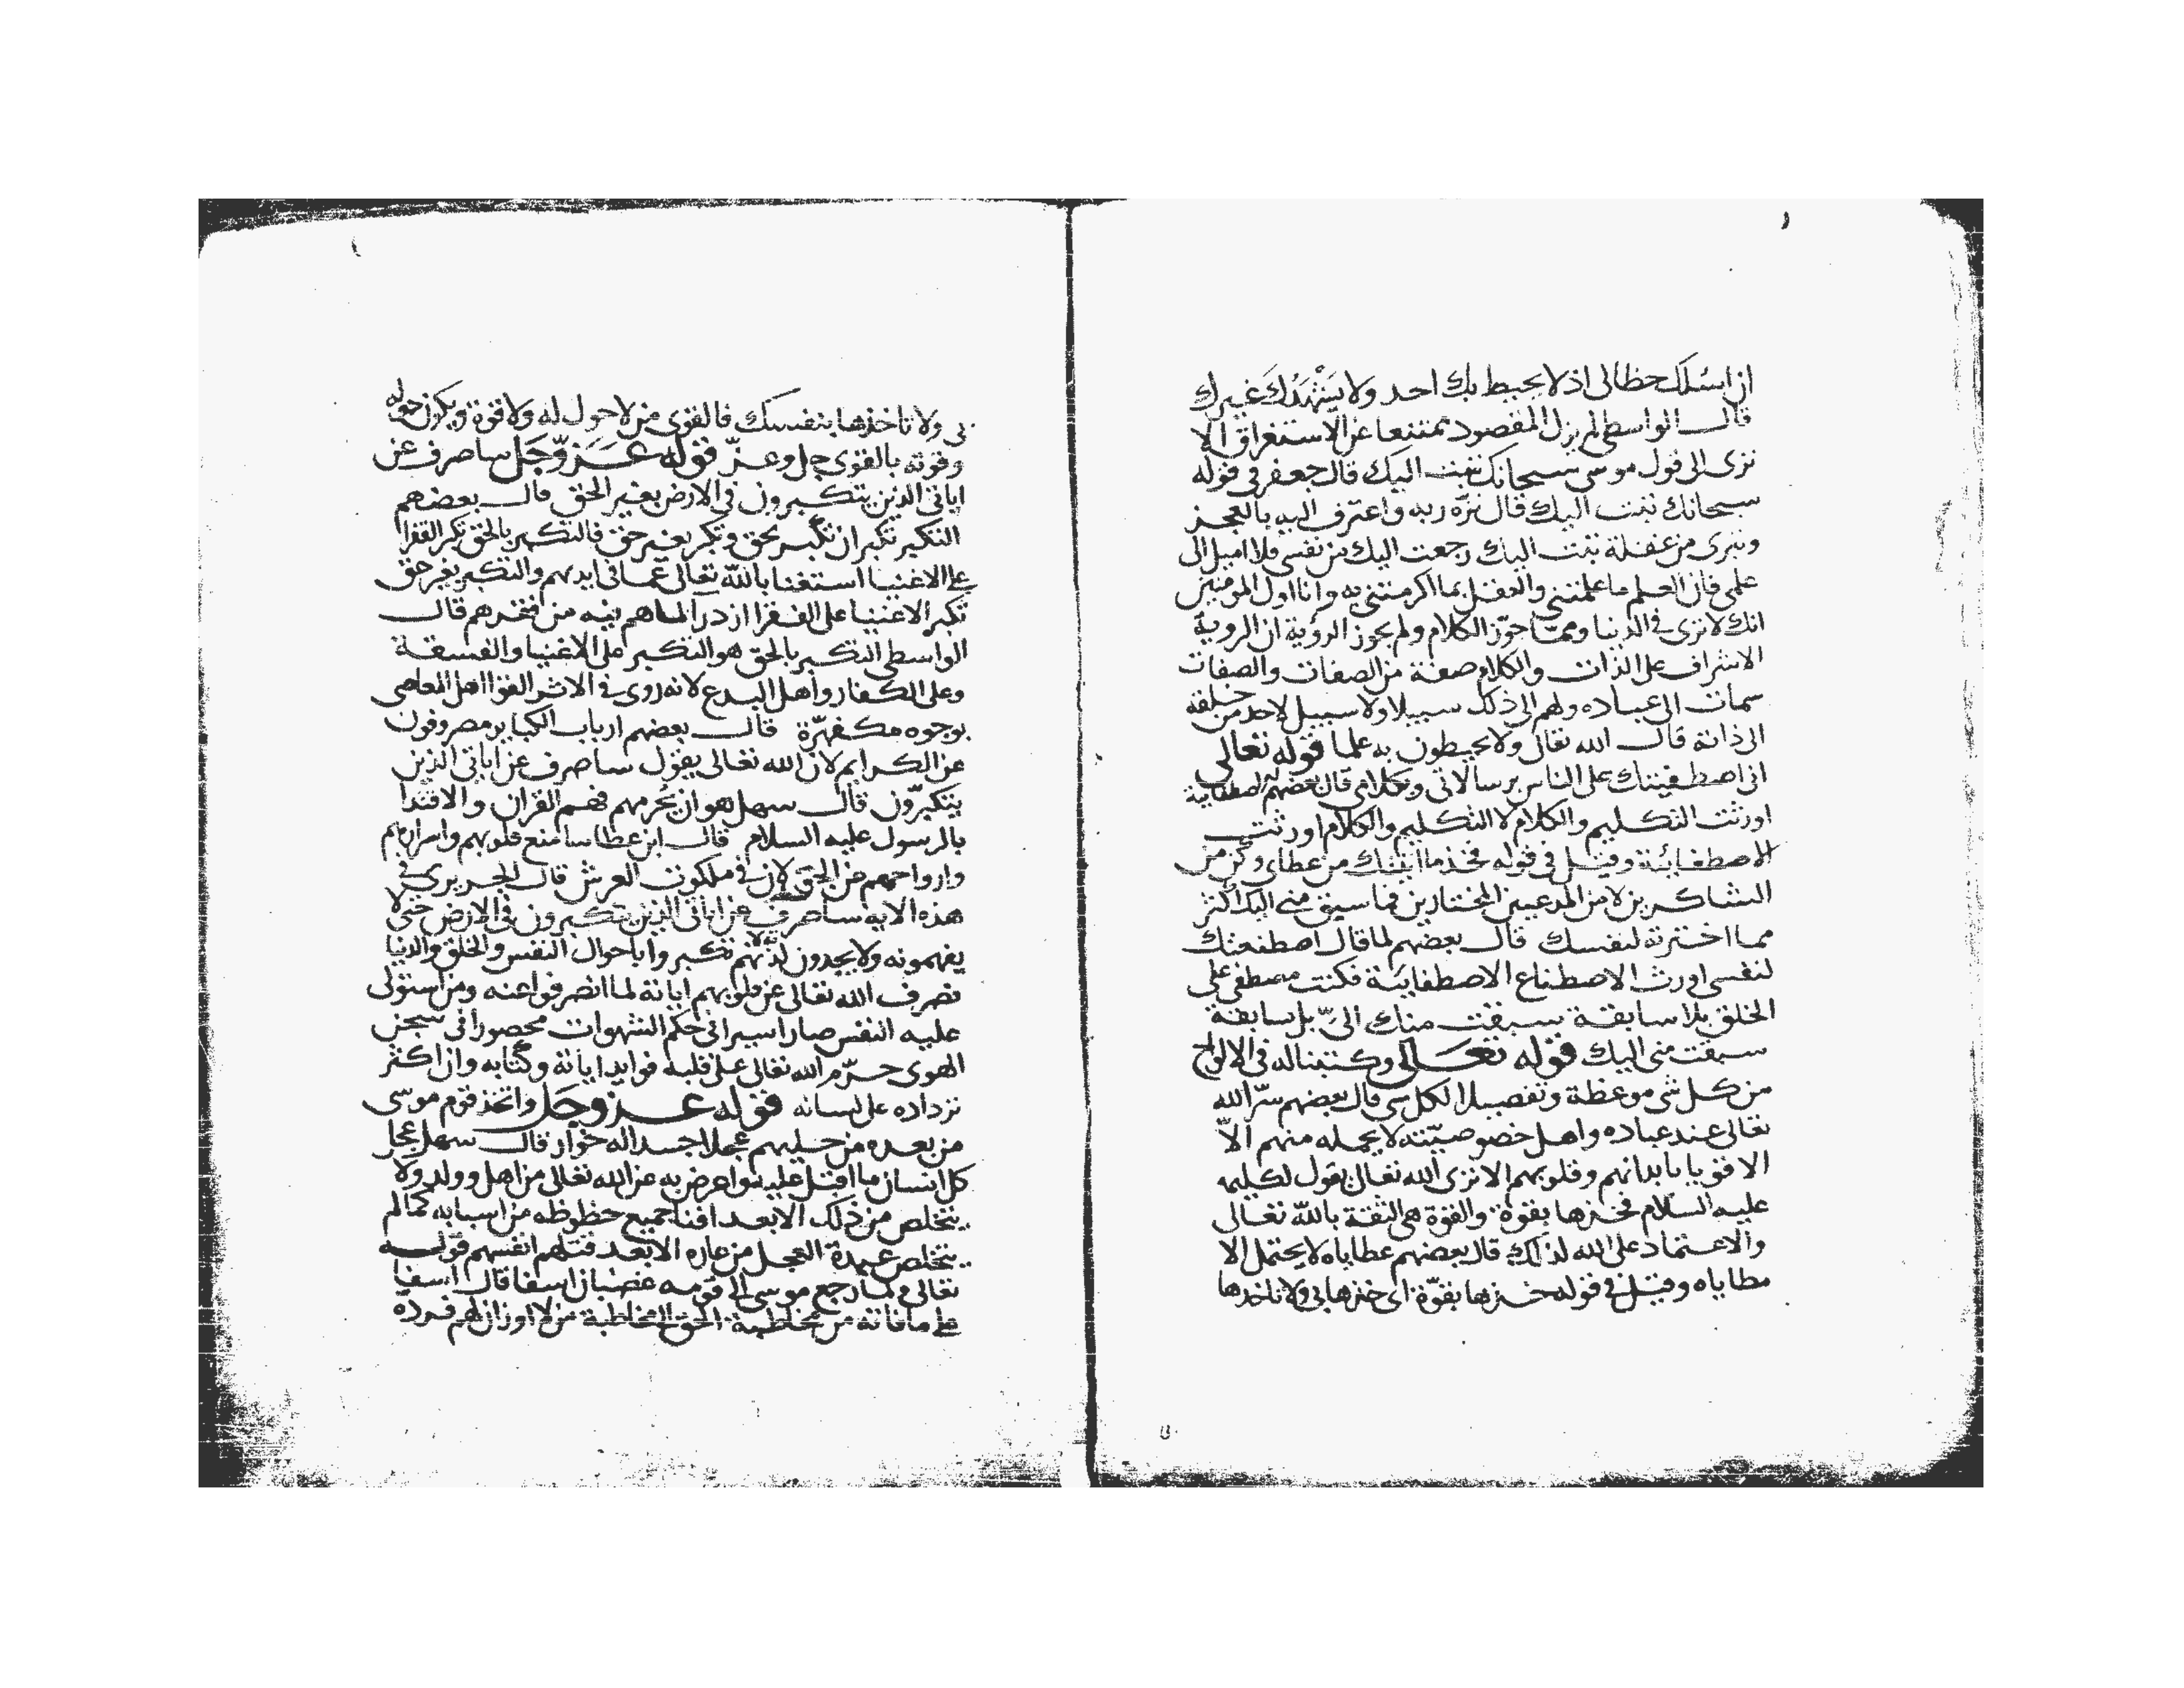 ان اسئلك حظا لى اذ لا يحيط بك احد ولا يشهدك غيرك
قال الواسطى لم يزل المقصود ممتنعا عن الاستغراق الا
ترى الى قول موسى سبحانك تبت اليك قال جعفر فى قوله
سبحانك تبت اليك قال نزّه ربه واعترف اليه بالعجز
وتبرى من عقله تبت اليك رجعت اليك من نفسى فلا اميل الى
علمى فان العلم ما علمتنى والعقل بما اكرمتنى به وانا اول المومنين
انك لا ترى فى الدنيا ومما جوّز الكلام ولم يجوز الرؤية ان الروية
الاشراف على الذات والكلام صفة من الصفات والصفات
سمات الى عباده ولهم الى ذلك سبيلا ولا سبيل لاحد من خلقه
الى ذاته قال الله تعالى ولا يحيطون به علما قوله تعالى
انى اصطفيتك على الناس برسالاتى وبكلامى قال بعضهم اصطفايية
اورثت التكليم والكلام لا التكليم والكلام اورثت
الاصطفائية وقيل فى قوله فخذ ما اتيتك من عطاى وكن من
الشاكرين لا من المدعيين المختارين فما سبق منى اليك اكثر
مما اخترته لنفسك قال بعضهم لما قال اصطنعتك
لنفسى اورث الاصطناع الاصطفايية فكنت مصطفى على
الخلق بلا سابقة سبقت منك الىّ بل سابقة
سبقت منى اليك قوله تعالى وكتبنا له فى الالواح
من كل شى موعظة وتفصيلا لكل شى قال بعضهم سرّ الله
تعالى عند عباده واهل خصوصيّته لا يحمله منهم الاّ
الاقويا بابدانهم وقلوبهم الا ترى الله تعالى يقول لكليمه
عليه السلام فخذها بقوة والقوة هى الثقة بالله تعالى
والاعتماد على الله لذلك قال بعضهم عطاياه لا يحتمل الا
مطاياه وقيل فى قوله خذها بقوّة اى خذها بى ولا تاخذها
بى ولا تاخذها بنفسك فالقوى من لا حول له ولا قوة ويكون حوله
وقوته بالقوى جل وعزّ قوله عز وجل ساصرف عن
اياتى الذين يتكبرون فى الارض بغير الحق قال بعضهم
التكبر تكبران تكبر بحق وتكبر بغير حق فالتكبر بالحق تكبر الفقرا
على الاغنيا استغنا بالله تعالى عما فى ايديهم والتكبر بغير حق
تكبر الاغنيا على الفقرا ازدرا لما هم فيه من فقرهم قال
الواسطى التكبر بالحق هو التكبر على الاغنيا والفسقة
وعلى الكفار واهل البدع لانه روى فى الاثر القوا اهل المعاصى
بوجوه مكفهرّة قال بعضهم ارباب الكباير مصروفون
عن الكرايم لان الله تعالى يقول ساصرف عن اياتى الذين
يتكبرّون قال سهل هو ان يحرمهم فهم القران والاقتدا
بالرسول عليه السلام قال ابن عطا سامنع قلوبهم واسرارهم
وارواحهم عن الجولان فى ملكوت العرش قال الجريرى فى
هذه الاية ساصرف عن اياتى الذين يتكبرون فى الارض حتى لا
يفهمونه ولا يجدون لذته لانهم تكبروا باحوال النفس والخلق والدنيا
فصرف الله تعالى عن قلوبهم اياته لما انصرفوا عنه ومن استولى
عليه النفس صار اسيرا فى حكم الشهوات محصورا فى سجن
الهوى حرّم الله تعالى على قلبه فوايد اياته وكتابه وان اكثر
ترداده على لسانه قوله عز وجل واتخذ قوم موسى
من بعده من حليهم عجلا جسدا له خوار قال سهل عجل
كل انسان ما اقبل عليه واعرض به عن الله تعالى من اهل وولد ولا
يتخلص من ذلك الا بعد افنا جميع حظوظه من اسبابه كما لم
يتخلص عبدة العجل من عاره الا بعد قتلهم انفسهم قوله
تعالى ولما رجع موسى الى قومه غضبان اسفا قال اسفا
على ما فاته من مخاطبة الحق الى مخاطبة من لا اوزان لهم فرده